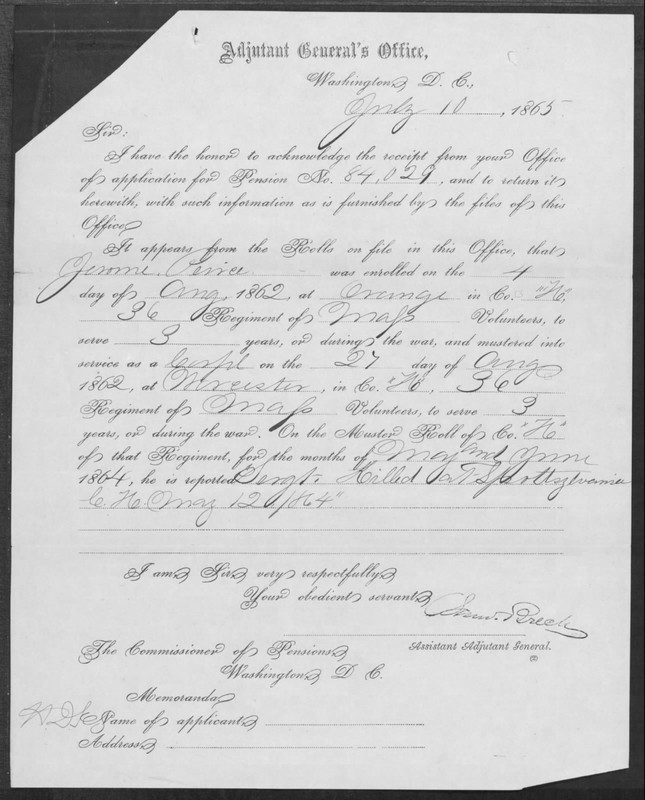 Adjutant General's Office,
Washington, D. C.,
July 10, 1865
Sir:
I have the honor to acknowledge the receipt from your Office
of application for Pension No. 84,029, and to return it
herewith, with such information as is furnished by the files of this
Office.
It appears from the Rolls on file in this Office, that
Jerome Peirce was enrolled on the 4
day of Aug, 1862, at Orange in Co. "H",
36 Regiment of Mass Volunteers, to
serve 3 years, or during the war, and mustered into
service as a Corpl on the 27 day of Aug
1862, at Worcester, in Co. "H", 36
Regiment of Mass Volunteers, to serve 3
years, or during the war. On the Muster Roll of Co. "H"
of that Regiment, for the months of May and June
1864, he is reported Sergt. Killed at Spottsylvania
C. H. May 12 1864"
I am, Sir, very respectfully,
Your obedient servant,
Saml. Breck
Assistant Adjutant General.
The Commissioner of Pensions,
Washington, D. C.
Memoranda,
Name of applicant,
Address,